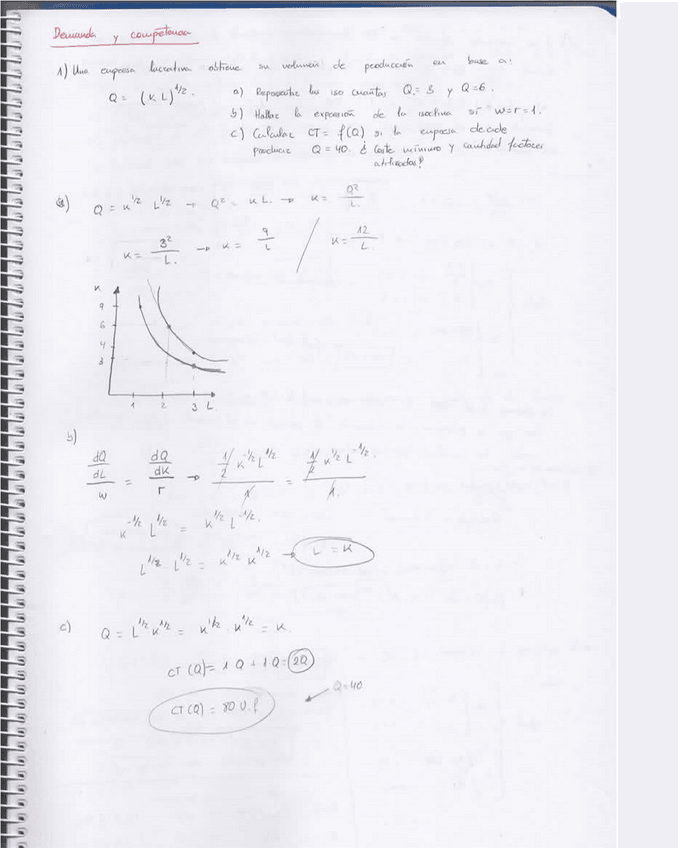 Demanda y competencia
1) Una empresa lucrativa obtiene su volumen de producción en base a:
Q = (K·L)^1/2.
a) Representar las isocuantas Q = 3 y Q = 6.
b) Hallar la expansión de la isoclina si w = r = 1.
c) Calcular CT = f(Q) si la empresa decide
producir Q = 40. ¿Coste mínimo y cantidad factores
utilizados?
a) Q = K^1/2 L^1/2 → Q² = KL. → K = Q²/L.
K = 3²/L. → K = 9/L / K = 12/L.
K
9
6
4
3
1 2 3 L
b)
dQ/dL / w = dQ/dK / r → 1/2 K^-1/2 L^1/2 / 1 = 1/2 K^1/2 L^-1/2. / 1.
K^-1/2 L^1/2 = K^1/2 L^-1/2.
L^1/2 L^1/2 = K^1/2 K^1/2 → L = K
c) Q = L^1/2 K^1/2 = K^1/2 · K^1/2 = K.
CT (Q) = 1Q + 1Q = 2Q
Q = 40
CT (Q) = 80 U.f